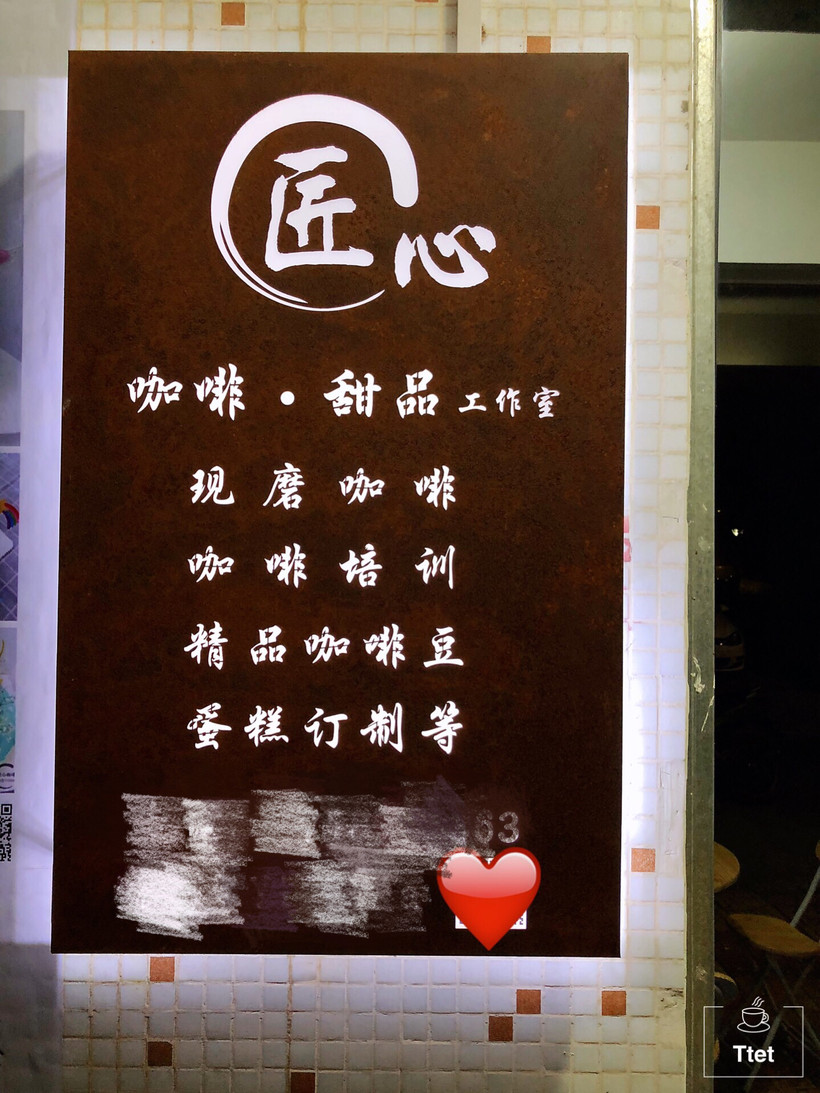 匠心
咖啡·甜品工作室
现磨咖啡
咖啡培训
精品咖啡豆
蛋糕订制等
63
Ttet